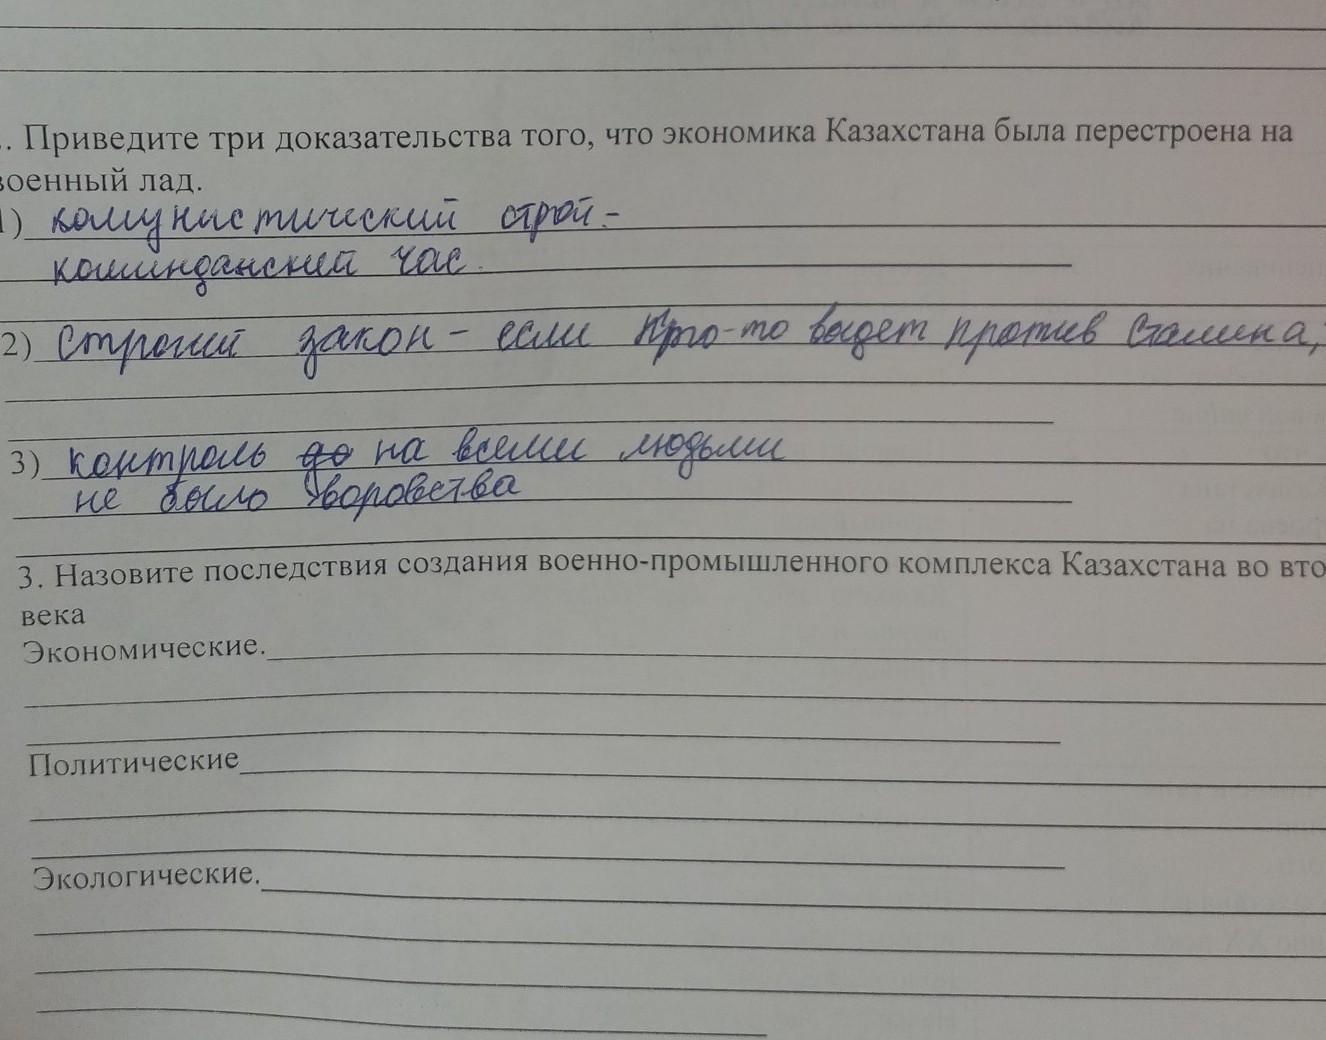 . Приведите три доказательства того, что экономика Казахстана была перестроена на
военный лад.
1) комунистический строй-
комминданский час.
2) Строгий закон - если кто-то выдет против Сталина,
3) контроль на всеми людьми
не было воровства
3. Назовите последствия создания военно-промышленного комплекса Казахстана во вто
века
Экономические.
Политические
Экологические.